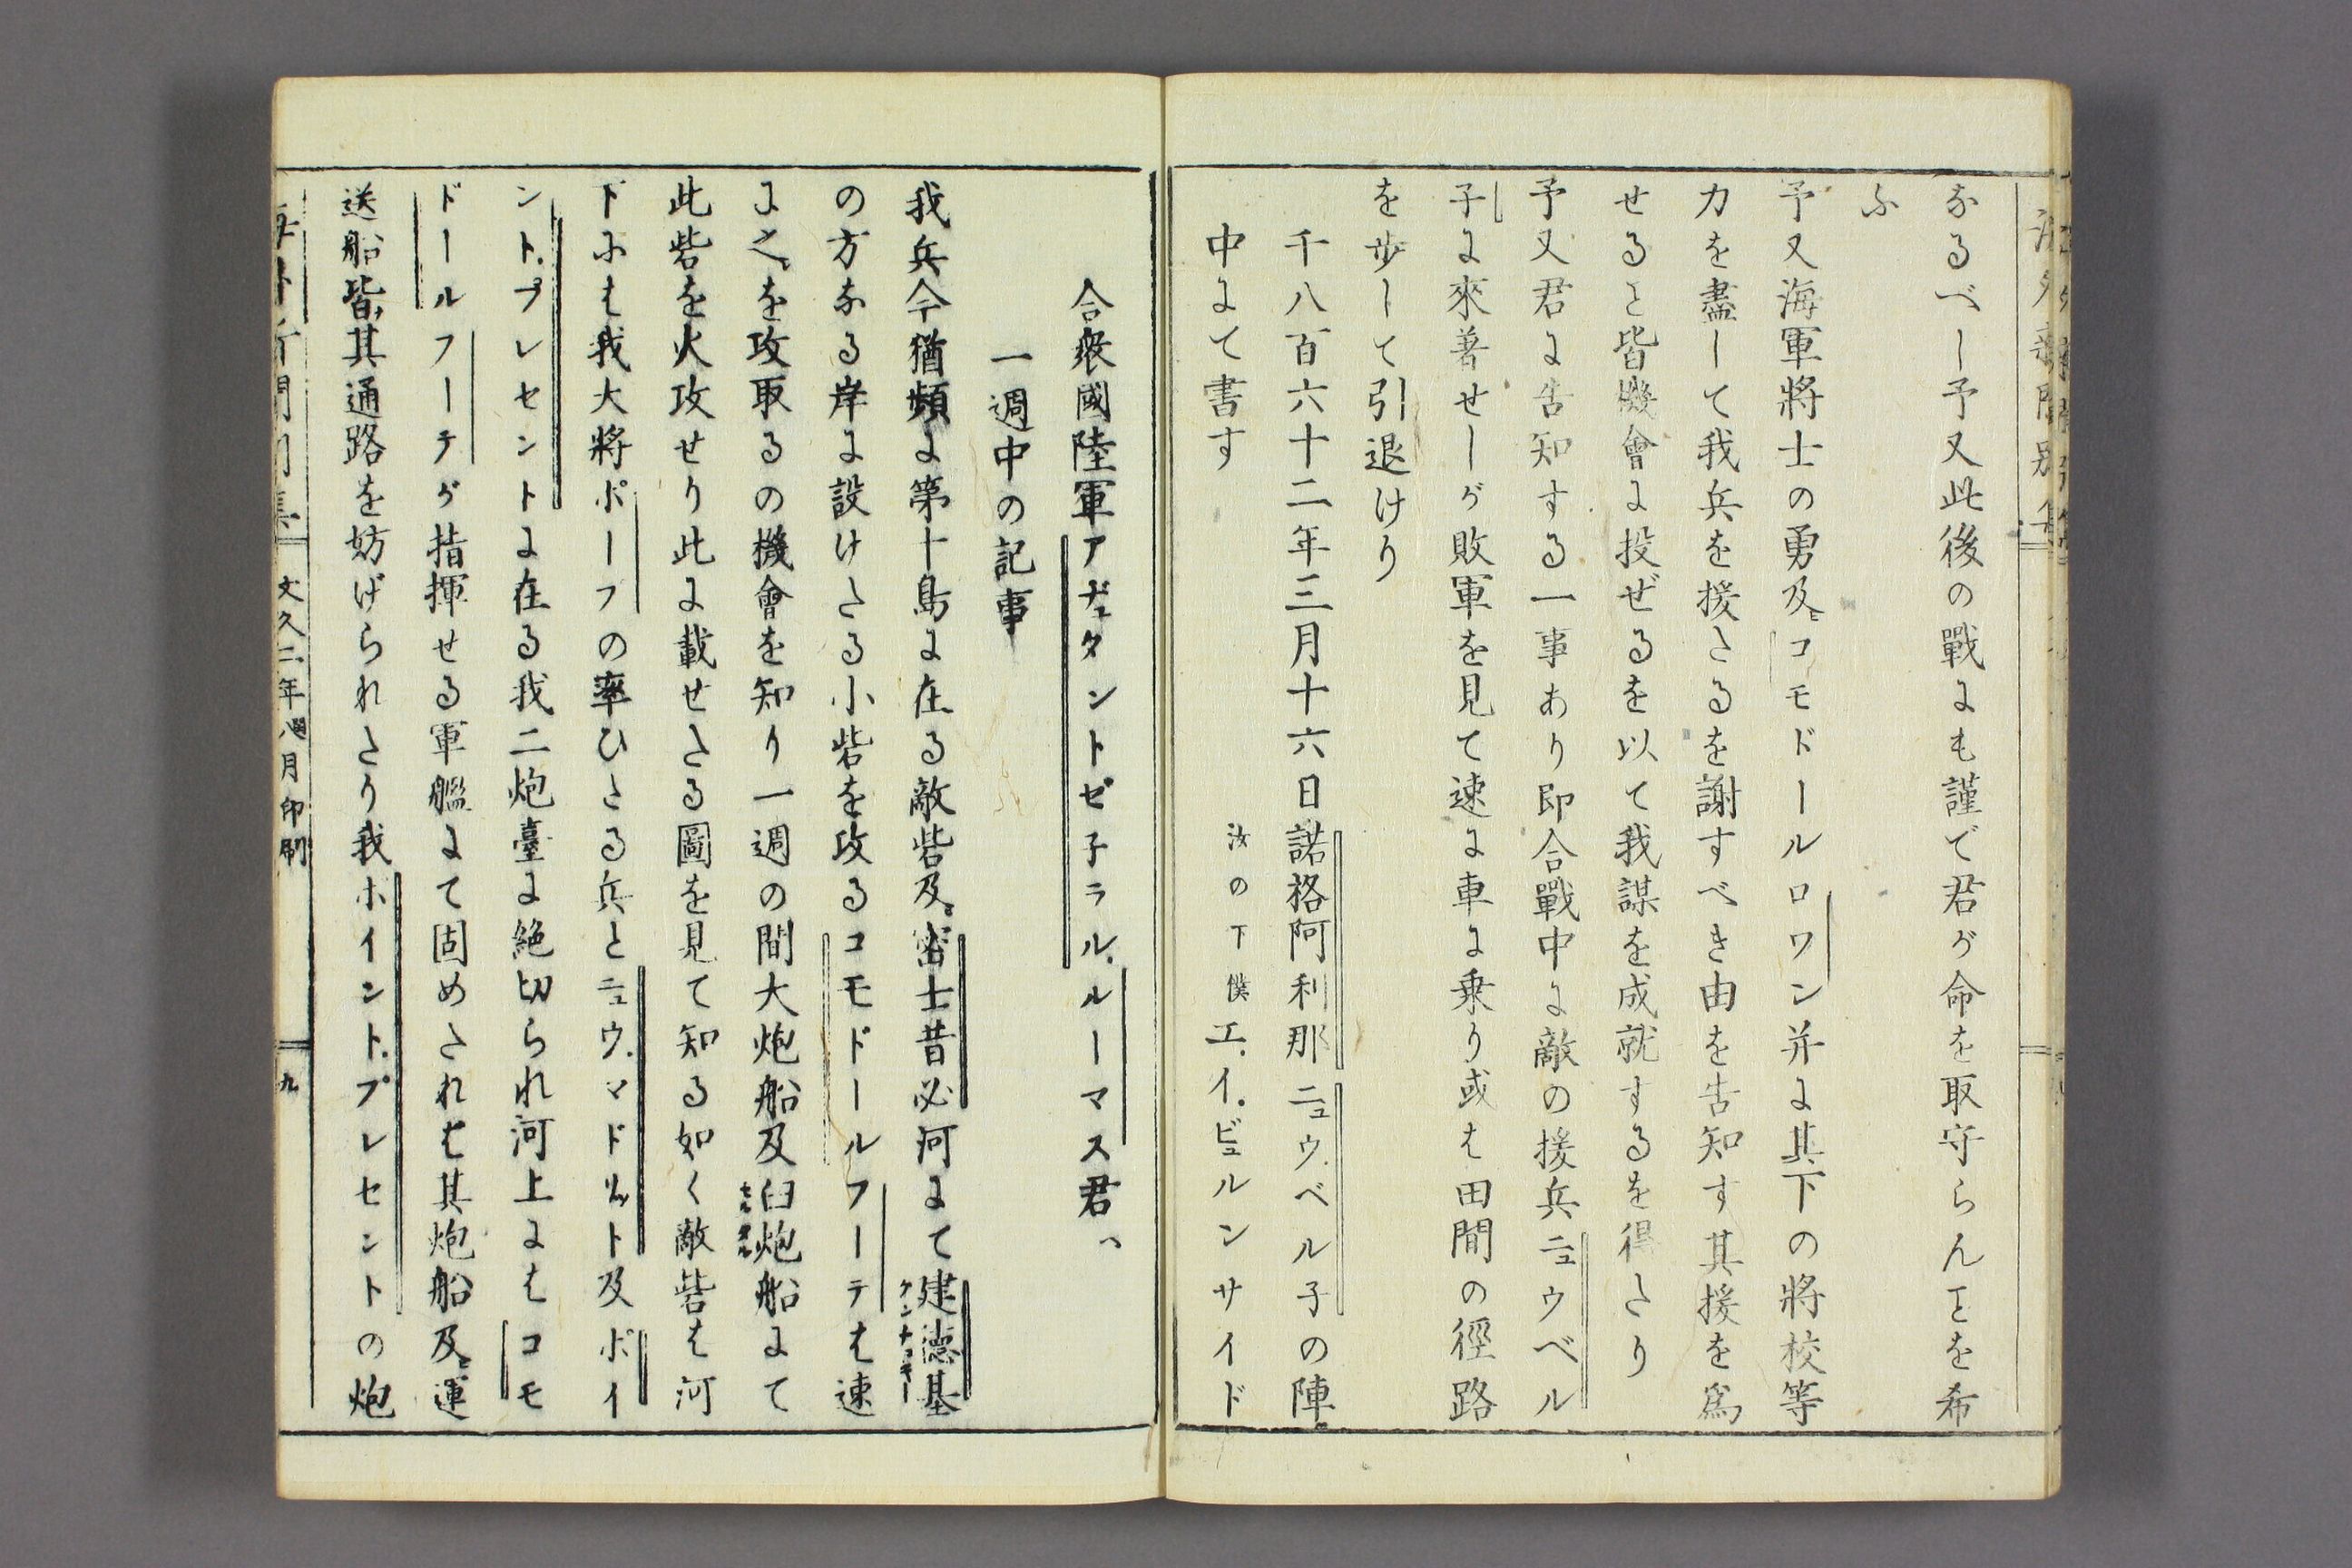 なるべし予又此後の戰にも謹で君が命を取守らんヿを希
ふ
予又海軍將士の勇及ヒコモドールロワン并に其下の將校等
力を盡して我兵を援たるを謝すべき由を告知す其援を爲
せると皆機會に投ぜるを以て我謀を成就するを得たり
予又君に告知する一事あり即合戰中に敵の援兵ニュウベル
子に來着せしが敗軍を見て速に車に乗り或は田間の徑路
を歩して引退けり
千八百六十二年三月十六日諾格阿利那ニュウベル子の陣
中にて書す 汝の下僕エ、イ、ビュルンサイド
合衆國陸軍アヂュタントゼ子ラル、ルーマス君、
一週中の記事
我兵今猶頻に第十島に在る敵砦及ヒ密士昔必河にて建德基ケンチュッキー
の方なる岸に設けたる小砦を攻るコモドールフーテは速
に之を攻取るの機會を知り一週の間大炮船及臼炮船にて
此砦を火攻せり此に載せたる圖を見て知る如く敵砦は河
下には我大將ポープの率ひたる兵とニュウ、マドリット及ポイ
ント、プレセントに在る我二炮臺に絶切られ河上にはコモ
ドールフーテが指揮せる軍艦にて固めたれば其炮船及ヒ運
送船皆其通路を妨げられたり我ポイント、プレセントの炮
文久二年閏八月印刷
九